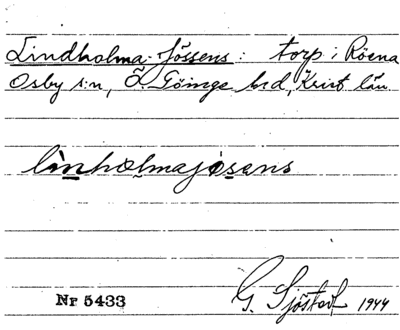 Lindholma-Jössens: torp i Röena
Osby s:n, Ö. Göinge hd, Krist län
linholmajösens
Nr 5433
G. Sjöstedt 1944